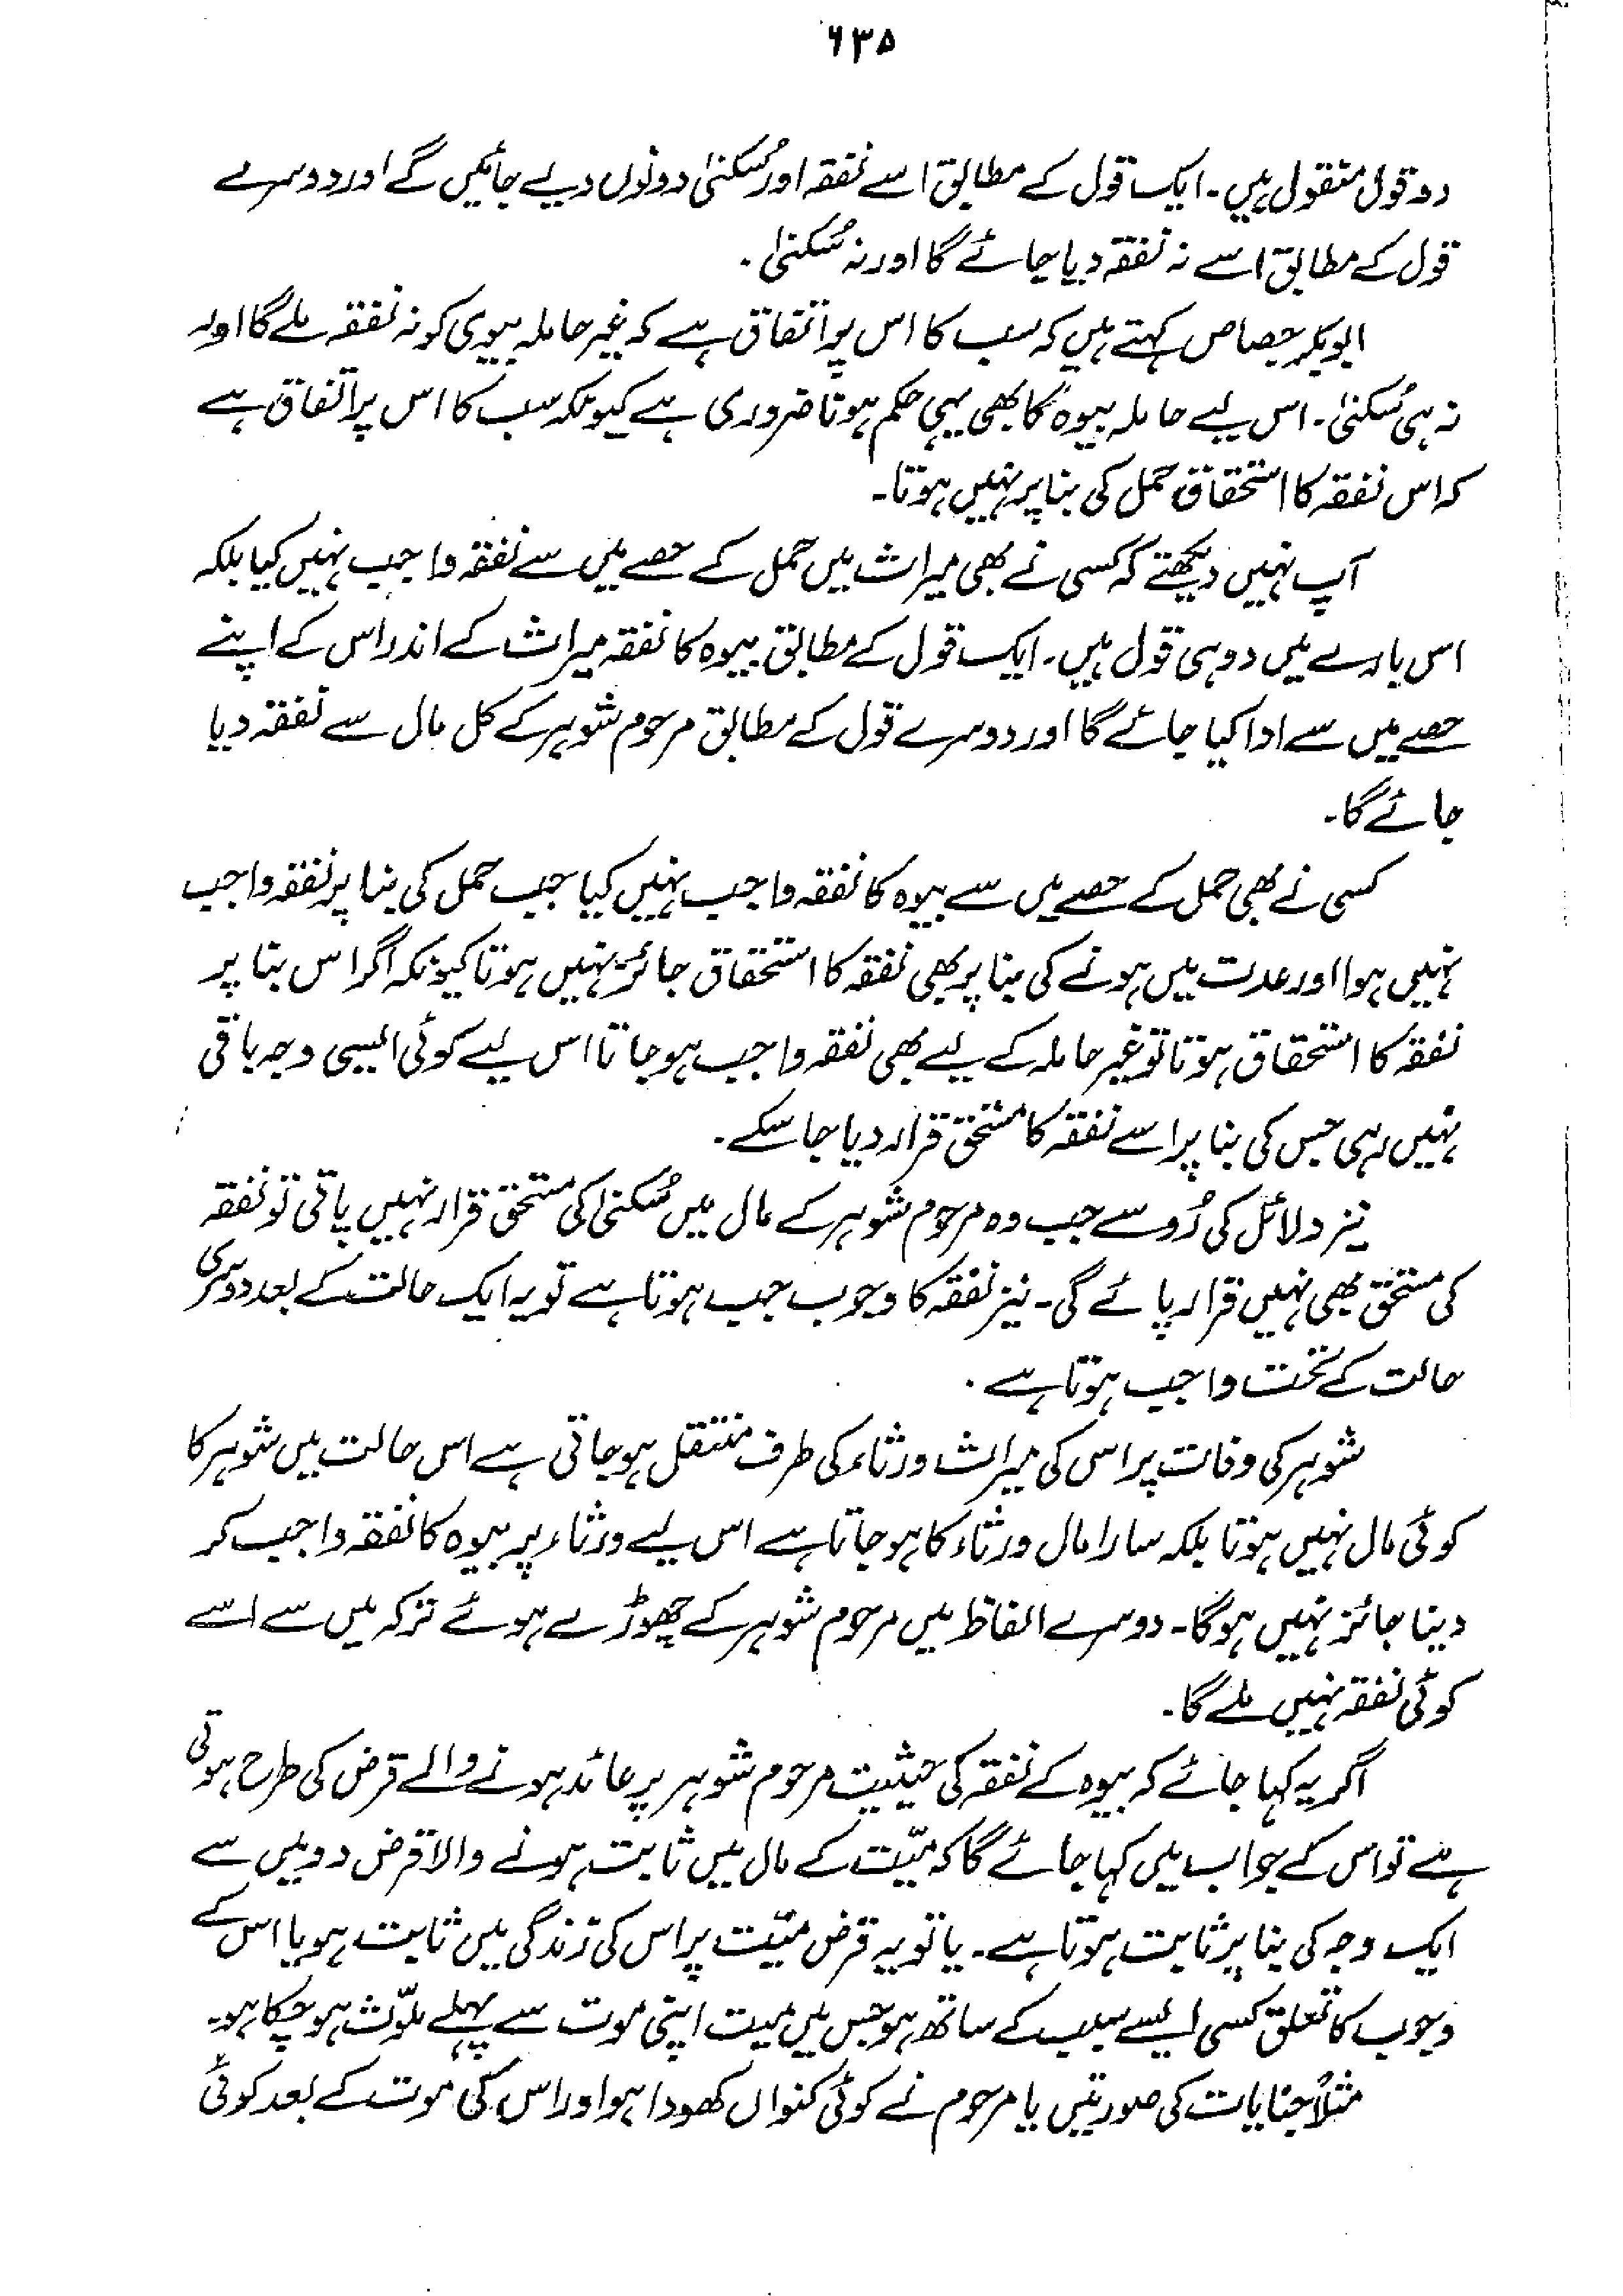 ۶۳۵
دو قول منقول ہیں۔ ایک قول کے مطابق اسے نفقہ اور سُکنیٰ دونوں دیے جائیں گے اور دوسرے
قول کے مطابق اسے نہ نفقہ دیا جائے گا اور نہ سُکنیٰ۔
ابوبکر جصاص کہتے ہیں کہ سب کا اس پر اتفاق ہے کہ غیر حاملہ بیوی کو نہ نفقہ ملے گا اور
نہ ہی سُکنیٰ۔ اس لیے حاملہ بیوہ کا بھی یہی حکم ہونا ضروری ہے کیونکہ سب کا اس پر اتفاق ہے
کہ اس نفقہ کا استحقاق حمل کی بنا پر نہیں ہوتا۔
آپ نہیں دیکھتے کہ کسی نے بھی میراث میں حمل کے حصے میں سے نفقہ واجب نہیں کیا بلکہ
اس بارے میں دو ہی قول ہیں۔ ایک قول کے مطابق بیوہ کا نفقہ میراث کے اندر اس کے اپنے
حصے میں سے ادا کیا جائے گا اور دوسرے قول کے مطابق مرحوم شوہر کے کل مال سے نفقہ دیا
جائے گا۔
کسی نے بھی حمل کے حصے میں سے بیوہ کا نفقہ واجب نہیں کیا جب حمل کی بنا پر نفقہ واجب
نہیں ہوا اور عدت میں ہونے کی بنا پر بھی نفقہ کا استحقاق جائز نہیں ہوتا کیونکہ اگر اس بنا پر
نفقہ کا استحقاق ہوتا تو غیر حاملہ کے لیے بھی نفقہ واجب ہو جاتا اس لیے کوئی ایسی وجہ باقی
نہیں رہی جس کی بنا پر اسے نفقہ کا مستحق قرار دیا جا سکے۔
نیز دلائل کی رُو سے جب وہ مرحوم شوہر کے مال میں سُکنیٰ کی مستحق قرار نہیں پاتی تو نفقہ
کی مستحق بھی نہیں قرار پائے گی۔ نیز نفقہ کا وجوب جب ہوتا ہے تو یہ ایک حالت کے بعد دوسری
حالت کے تحت واجب ہوتا ہے۔
شوہر کی وفات پر اس کی میراث ورثاء کی طرف منتقل ہو جاتی ہے اس حالت میں شوہر کا
کوئی مال نہیں ہوتا بلکہ سارا مال ورثاء کا ہو جاتا ہے اس لیے ورثاء پر بیوہ کا نفقہ واجب کر
دینا جائز نہیں ہوگا۔ دوسرے الفاظ میں مرحوم شوہر کے چھوڑے ہوئے ترکہ میں سے اسے
کوئی نفقہ نہیں ملے گا۔
اگر یہ کہا جائے کہ بیوہ کے نفقہ کی حیثیت مرحوم شوہر پر عائد ہونے والے قرض کی طرح ہوتی
ہے تو اس کے جواب میں کہا جائے گا کہ میّت کے مال میں ثابت ہونے والا قرض دو میں سے
ایک وجہ کی بنا پر ثابت ہوتا ہے۔ یا تو یہ قرض میّت پر اس کی زندگی میں ثابت ہو یا اس کے
وجوب کا تعلق کسی ایسے سبب کے ساتھ ہو جس میں میت اپنی موت سے پہلے ملوّث ہو چکا ہو۔
مثلاً جنایات کی صورتیں یا مرحوم نے کوئی کنواں کھودا ہو اور اس کی موت کے بعد کوئی